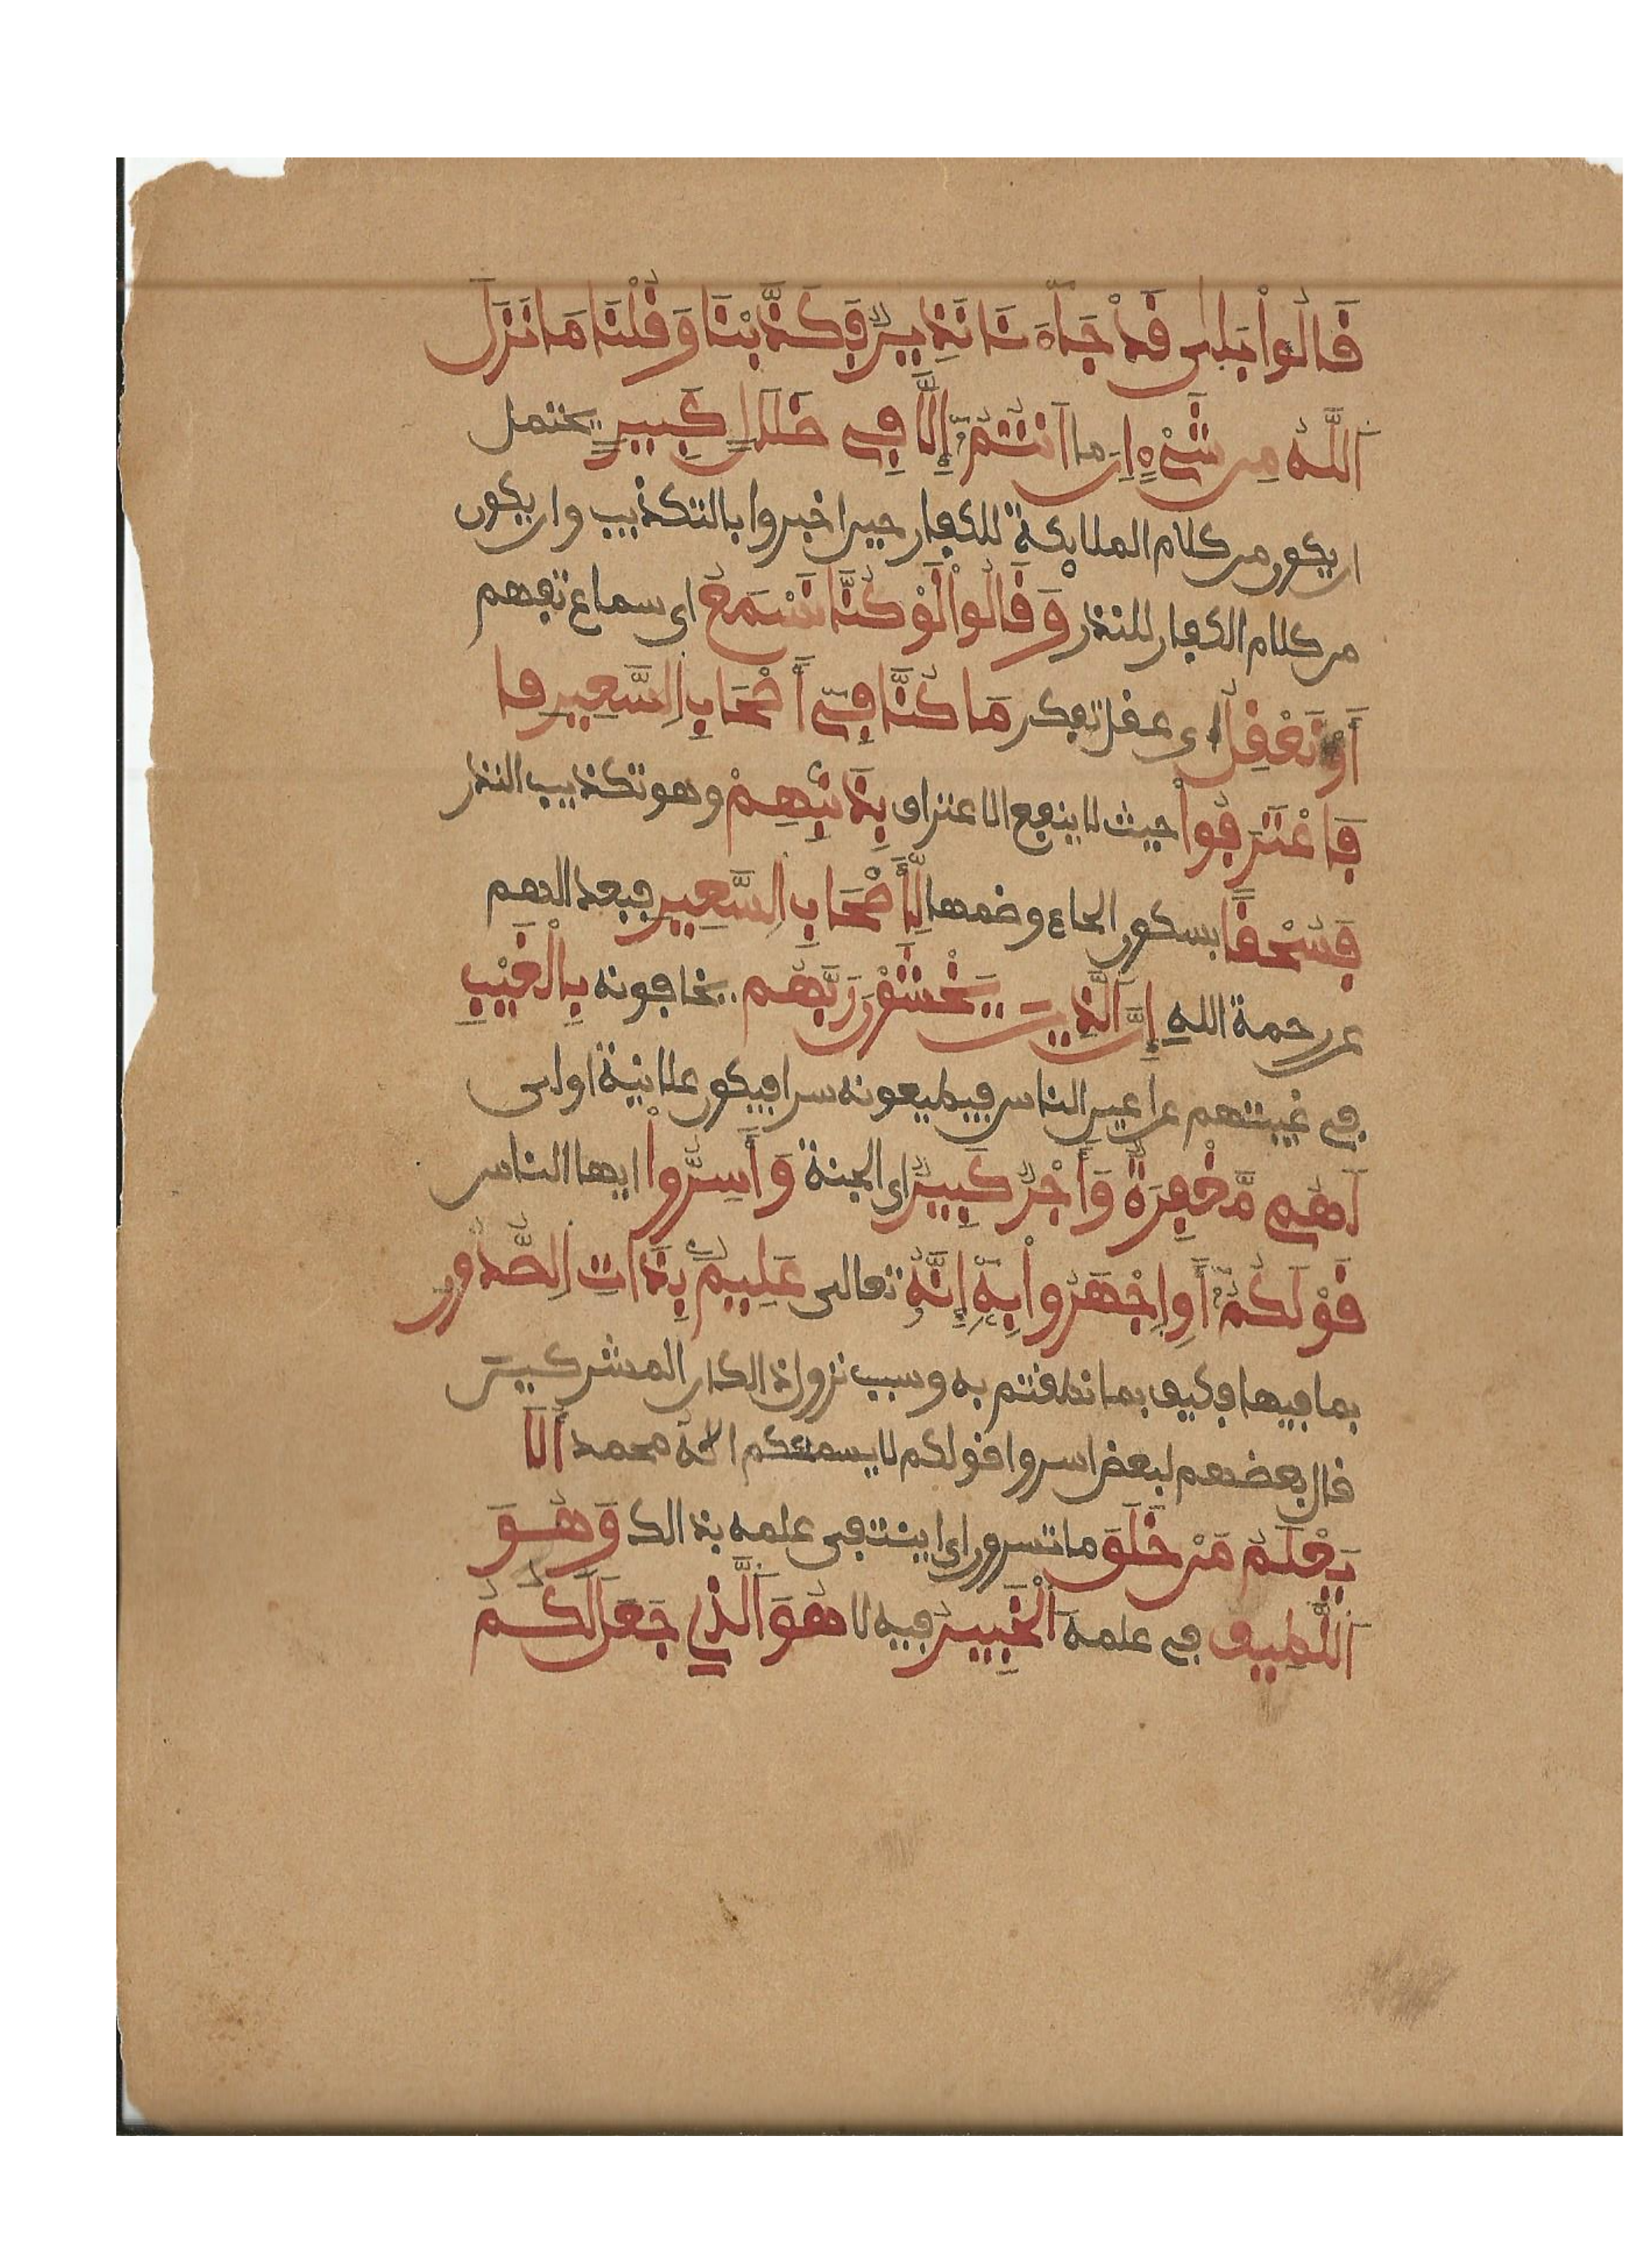 قَالُواْ بَلٰى قَدْ جَآءَنَا نَذِيرٌ فَكَذَّبْنَا وَقُلْنَا مَا نَزَّلَ
اَللَّهُ مِن شَيْءٍ اِنَ ما اَنتُمُۥٓ إِلَّا فِى ضَلَلٍ كَبِيرٍ يحتمل
ان يكون من كلام الملايكة للكفار حين اخبروا بالتكذيب وان يكون
من كلام الكفار للنذر وَقَالُواْ لَوْ كُنَّا نَسْمَعُ اى سماع تفهم
أَوْ نَعْقِلُ اى عقل تفكر مَا كُنَّا فِىٓ أَصْحَابِ اِلسَّعِيرِ فا
فَاعْتَرَفُواْ حيث لا ينفع الاعتراف بِذَنۢبِهِمْ وهو تكذيب النذر
فَسُحْقًا بسكون الحاء وضمها لِّأَصْحَابِ اِلسَّعِيرِ فبعدا لهم
عن رحمة اللهِ إِنَّ اَلَّذِينَ يَخْشَوْنَ رَبَّهُم يخافونه بِالْغَيْبِ
فى غيبتهم عن اعين الناس فيطيعونه سرا فيكون علانية اولى
لَهُم مَّغْفِرَةٌ وَأَجْرٌ كَبِيرٌ اى الجنة وَأَسِرُّواْ ايها الناس
قَوْلَكُمُۥٓ أَوِ اِجْهَرُواْ بِهِۦٓ إِنَّهُۥ تعالى عَلِيمٌۢ بِذَاتِ اِلصُّدُورِ
بما فيها فكيف بما نطقتم به وسبب نزول ذالك ان المشركين
قال بعضهم لبعض اسروا قولكم لا يسمعكم الاه محمد أَلَا
يَعْلَمُ مَنْ خَلَقَ ما تسرون اى اينتفى علمه بذالك وَهُوَ
اَللَّطِيفُ فى علمه اَلْخَبِيرُ فيه لا هُوَ اَلَّذِي جَعَلَ لَكُمُ